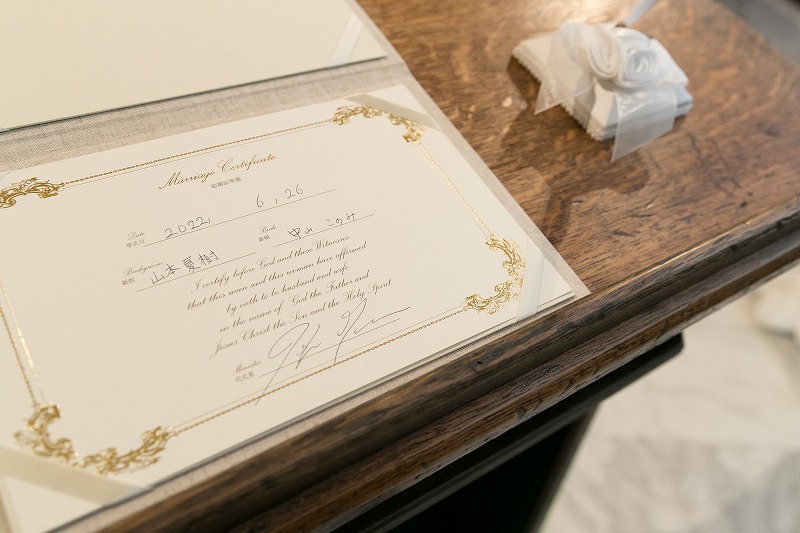 Marriage Certificate
結婚証明書
Date 2022, 6, 26
挙式日
Bridegroom 山本 夏樹 Bride 中山 このみ
新郎 新婦
I certify before God and these Witnesses
that this man and this woman have affirmed
by oath to be husband and wife
in the name of God the Father and
Jesus Christ the Son and the Holy Spirit
Minister
司式者